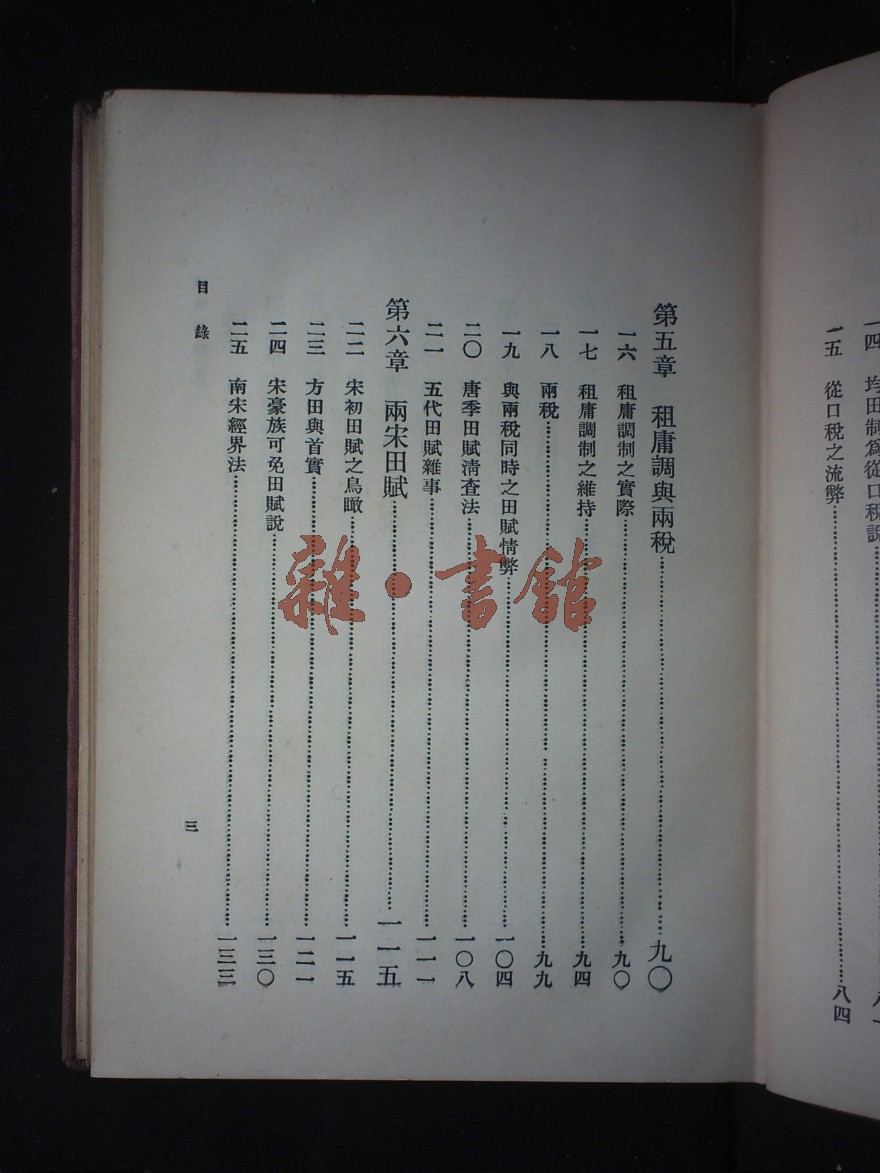 一四　均田制為從口稅說……八一
一五　從口稅之流弊……八四
第五章　租庸調與兩稅……九〇
一六　租庸調制之實際……九〇
一七　租庸調制之維持……九四
一八　兩稅……九九
一九　與兩稅同時之田賦情弊……一〇四
二〇　唐季田賦清查法……一〇八
二一　五代田賦雜事……一一一
第六章　兩宋田賦……一一五
二二　宋初田賦之鳥瞰……一一五
二三　方田與首實……一二一
二四　宋豪族可免田賦說……一三〇
二五　南宋經界法……一三三
目錄
三
雜·書館